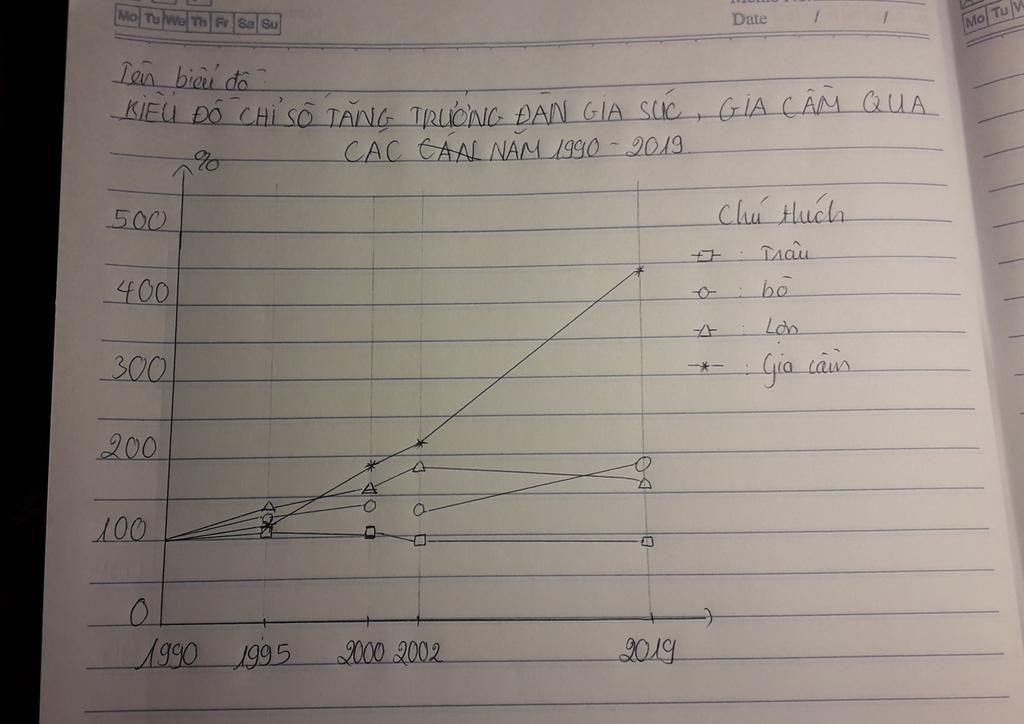 Mo Tu We Th Fr Sa Su
Date / /
Mo Tu
Tên biểu đồ:
KIỂU ĐỒ CHỈ SỐ TĂNG TRƯỞNG ĐÀN GIA SÚC, GIA CẦM QUA
CÁC CÁC NĂM 1990 - 2019
%
500
400
300
200
100
0
1990 1995 2000 2002 2019
Chú thích
: Trâu
: bò
: Lợn
: Gia cầm